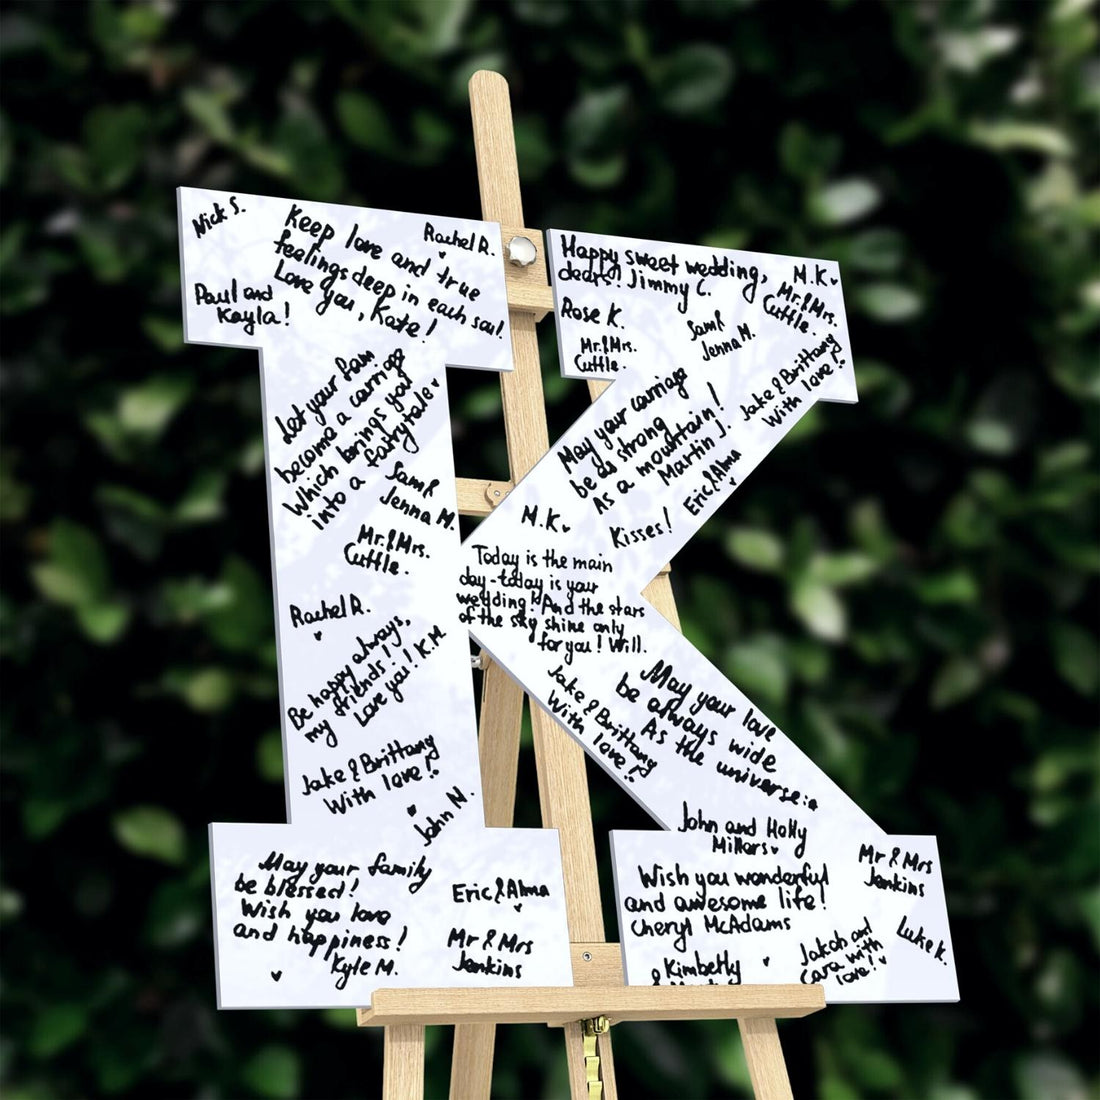 Nick S.
Keep love and true
feelings deep in each soul.
Love you, Kate!
Rachel R.
Paul and
Kayla!
Let your
become a carriage
Which brings you
into a fairytale
Sam &
Jenna M.
Mr. & Mrs.
Cuttle.
Rachel R.
Be happy always,
my friends!
Love you! K.M.
Jake & Brittany
With love!
John N.
May your family
be blessed!
Wish you love
and happiness!
Kyle M.
Eric & Alma
Mr & Mrs
Jenkins
Happy sweet wedding,
dears! Jimmy C.
M.K
Mr. & Mrs.
Cuttle.
Rose K.
Mr. & Mrs.
Cuttle.
Sam &
Jenna M.
Jake & Brittany
With love!
May your carriage
be as strong
As a mountain!
Martin J.
Eric & Alma
Kisses!
M.K
Today is the main
day-today is your
wedding! And the stars
of the sky shine only
for you! Will.
Jake & Brittany
With love!
May your love
be always wide
As the universe:
John and Holly
Millers
Mr & Mrs
Jenkins
Wish you wonderful
and awesome life!
Cheryl McAdams
Luke K.
Jakob and
Cara with
love!
Kimberly
&